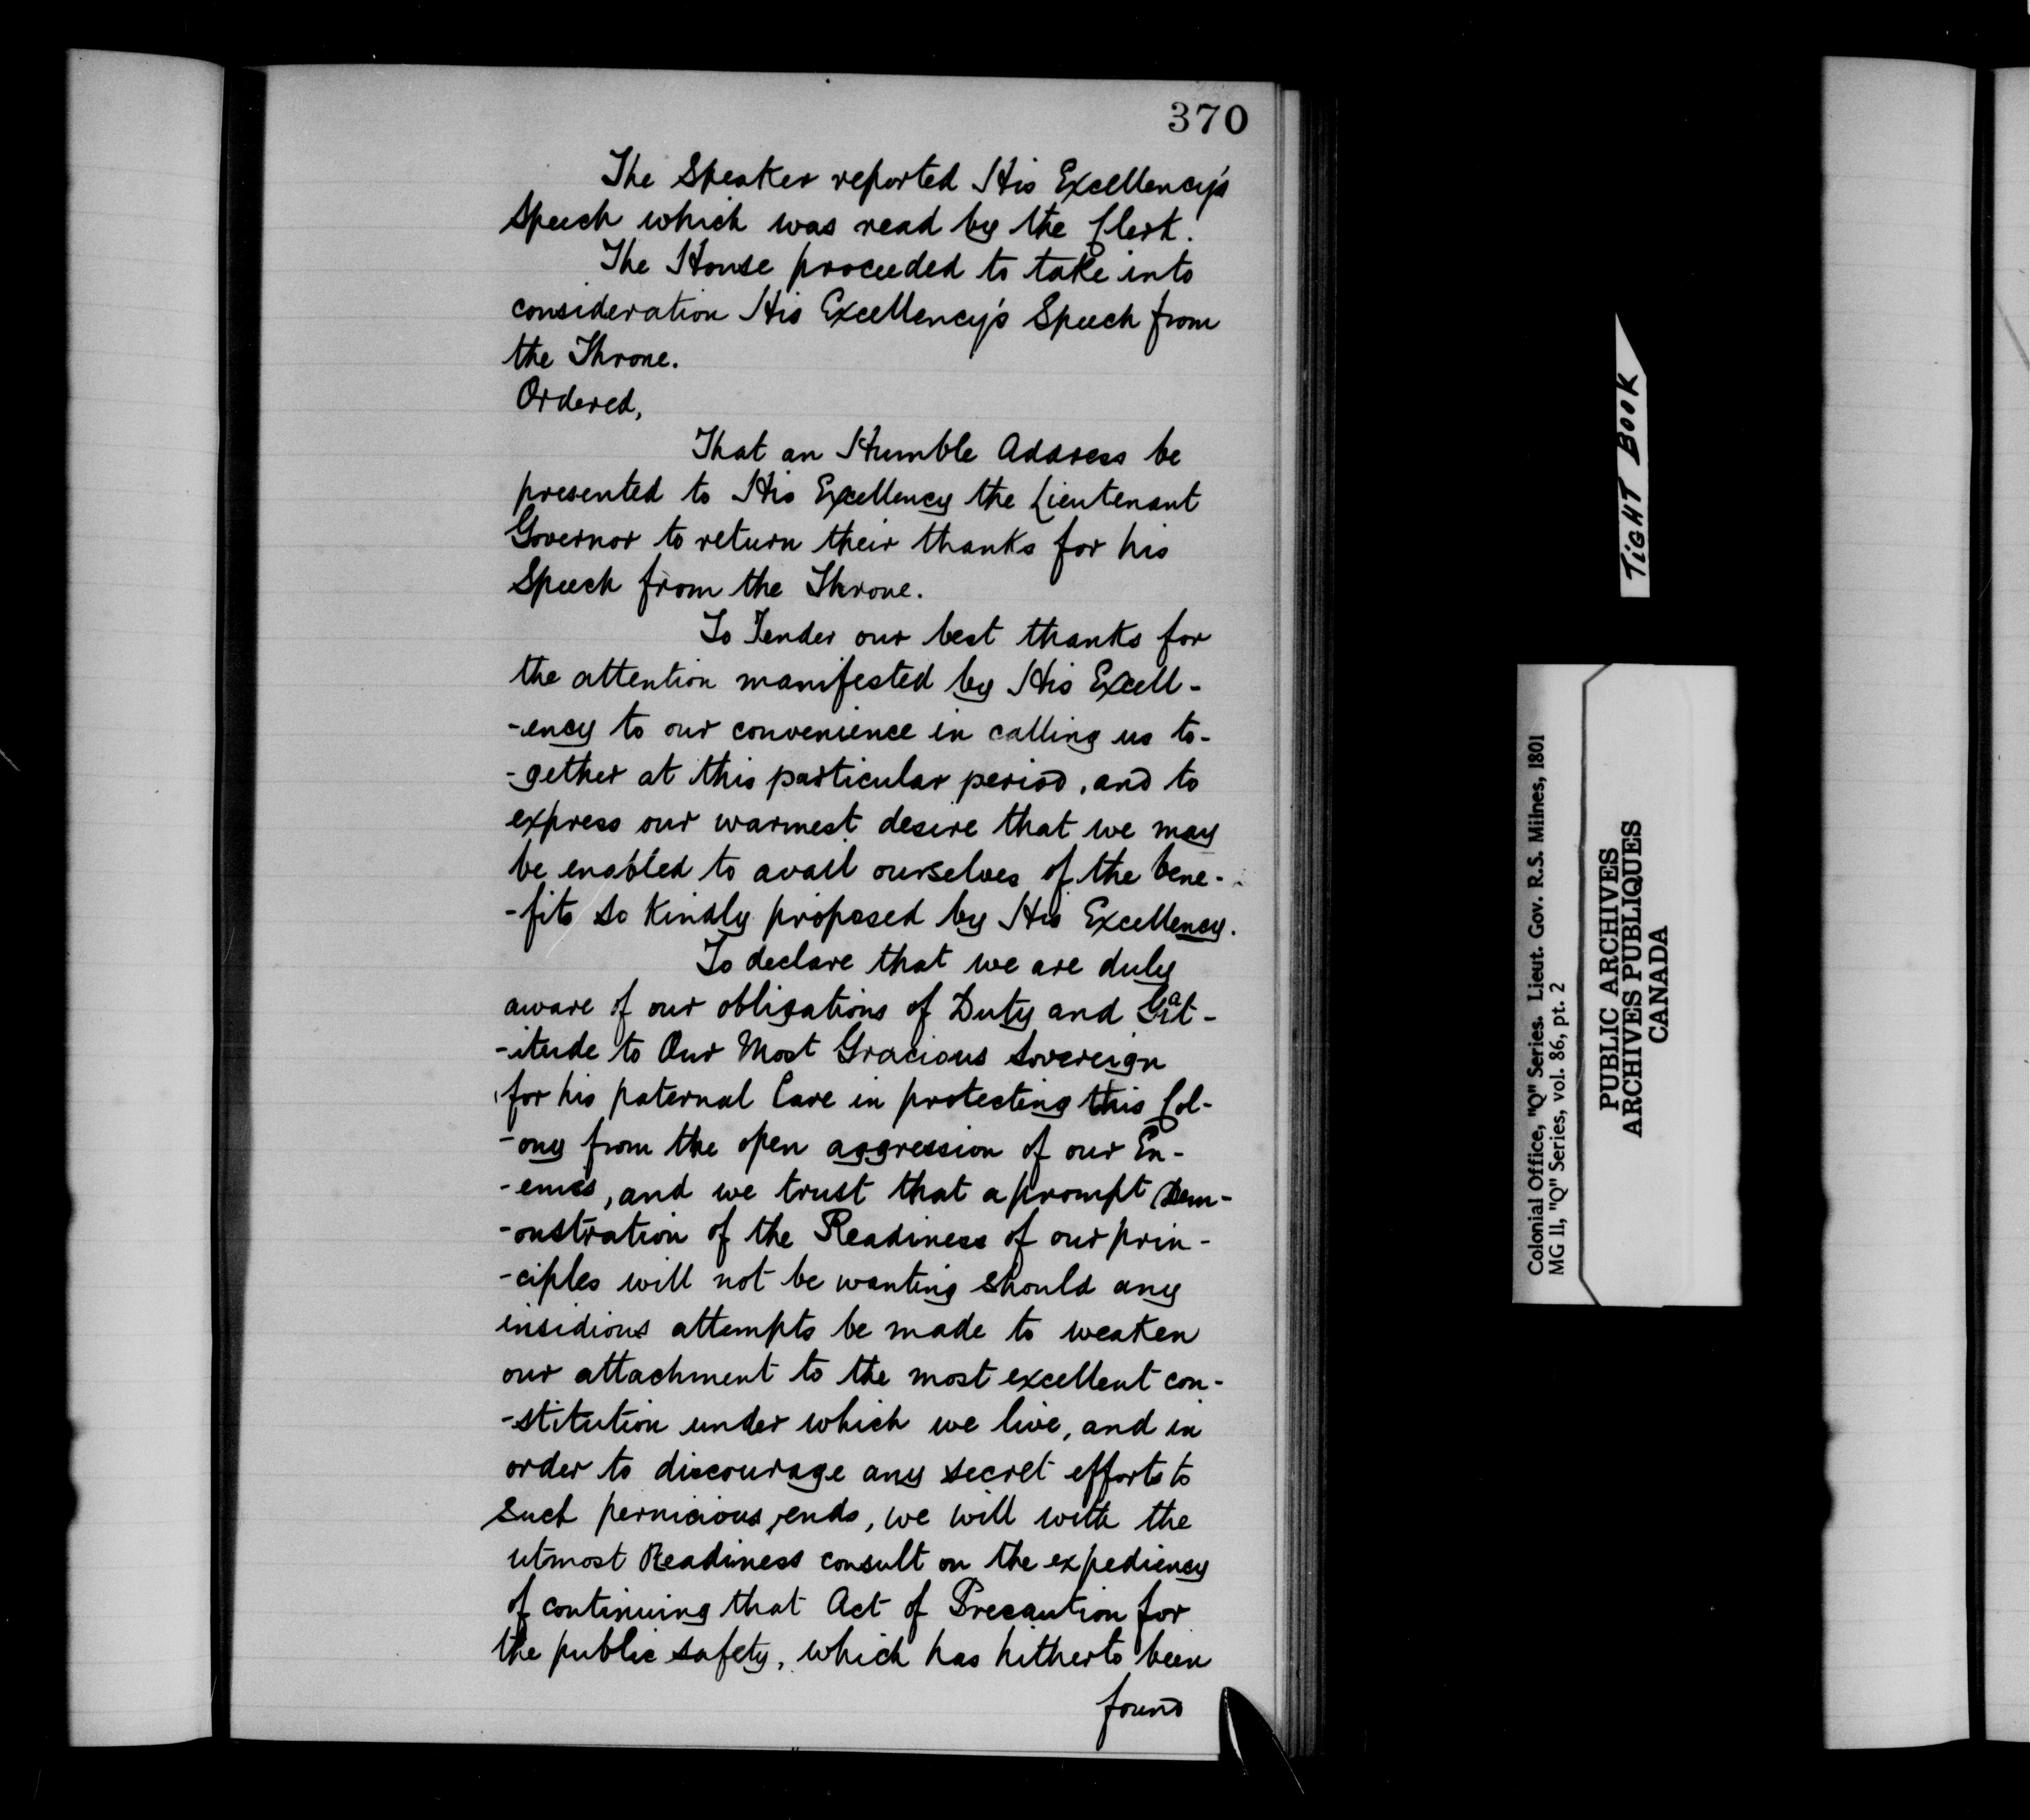 370
The Speaker reported His Excellency's
Speech which was read by the Clerk.
The House proceeded to take into
consideration His Excellency's Speech from
the Throne.
Ordered,
That an Humble Address be
presented to His Excellency the Lieutenant
Governor to return their thanks for his
Speech from the Throne.
To Tender our best thanks for
the attention manifested by His Excell-
-ency to our convenience in calling us to-
-gether at this particular period, and to
express our warmest desire that we may
be enabled to avail ourselves of the bene-
-fits so kindly proposed by His Excellency.
To declare that we are duly
aware of our obligations of Duty and Grat-
-itude to Our Most Gracious Sovereign
for his paternal Care in protecting this Col-
-ony from the open aggression of our En-
-emies, and we trust that a prompt Dem-
-onstration of the Readiness of our prin-
-ciples will not be wanting should any
insidious attempts be made to weaken
our attachment to the most excellent con-
-stitution under which we live, and in
order to discourage any secret efforts to
such pernicious ends, we will with the
utmost Readiness consult on the expediency
of continuing that Act of Precaution for
the public safety, which has hitherto been
found
TIGHT BOOK
Colonial Office, "Q" Series. Lieut. Gov. R.S. Milnes, 1801
MG 11, "Q" Series, vol. 86, pt. 2
PUBLIC ARCHIVES
ARCHIVES PUBLIQUES
CANADA